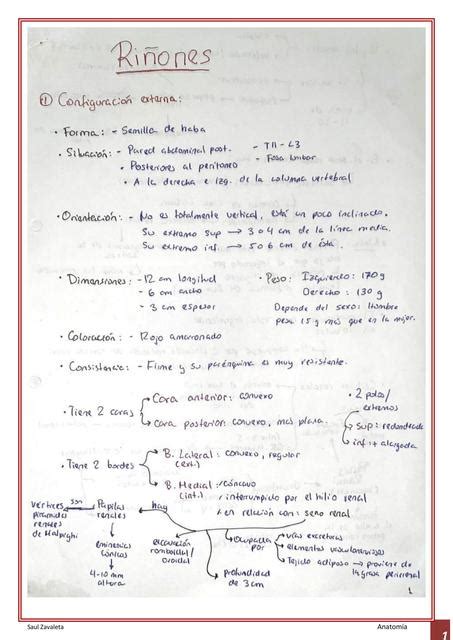 Riñones
① Configuración externa:
• Forma: - Semilla de haba
• Situación: - Pared abdominal post. - T11 - L3
• Posteriores al peritoneo - Fosa lumbar
• A la derecha e izq. de la columna vertebral
• Orientación: - No es totalmente vertical, está un poco inclinado.
Su extremo sup → 3 o 4 cm de la línea media.
Su extremo inf. → 5 o 6 cm de ésta.
• Dimensiones: - 12 cm longitud • Peso: Izquierdo: 170 g
- 6 cm ancho Derecho: 130 g
- 3 cm espesor Depende del sexo: Hombre
pesa 15 g más que en la mujer.
• Coloración: - Rojo amarronado
• Consistencia: - Firme y su parénquima es muy resistente.
• Tiene 2 caras
Cara anterior: convexo
Cara posterior: convexo, mas plana.
• 2 polos/
extremos
sup: redondeada
inf: + alargada
• Tiene 2 bordes
B. Lateral: convexo, regular
(ext.)
B. Medial: /cóncavo
(int.) /interrumpido por el hilio renal
/en relación con: seno renal
vértices
piramides
renales
de Malpighi
son
Papilas
renales
hay
eminencias
cónicas
4-10 mm
altura
excavación
romboidal/
ovoidal
profundidad
de 3 cm
Ocupada
por
vías excretoras
elementos vasculonerviosos
Tejido adiposo → proviene de
la grasa perirrenal
1
Saul Zavaleta
Anatomía
1